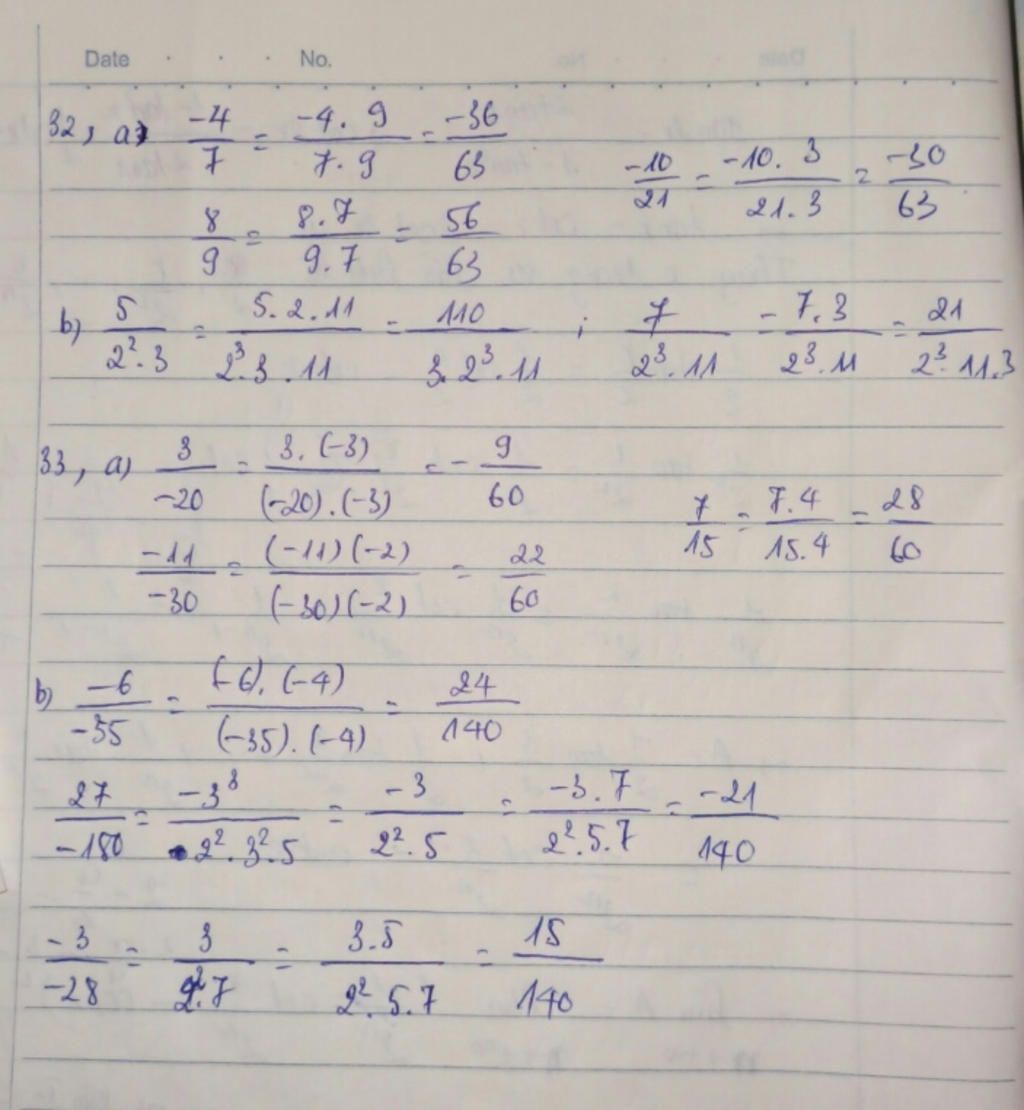 Date No.
32, a) -4/7 = -4.9/7.9 = -36/63
-10/21 = -10.3/21.3 = -30/63
8/9 = 8.7/9.7 = 56/63
b) 5/2².3 = 5.2.11/2³.3.11 = 110/3.2³.11 ; 7/2³.11 = 7.3/2³.11 = 21/2³.11.3
33, a) 3/-20 = 3.(-3)/(-20).(-3) = -9/60
7/15 = 7.4/15.4 = 28/60
-11/-30 = (-11)(-2)/(-30)(-2) = 22/60
b) -6/-35 = (-6).(-4)/(-35).(-4) = 24/140
27/-180 = -3³/2².3².5 = -3/2².5 = -3.7/2².5.7 = -21/140
-3/-28 = 3/2².7 = 3.5/2².5.7 = 15/140